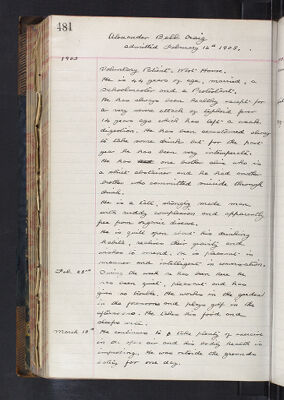 481
Alexander Bell Craig
admitted February 16th 1903.
1903
Voluntary Patient. West House.
He is 44 years of age, married, a
Schoolmaster and a Protestant.
He has always been healthy except for
a very severe attack of typhoid fever
14 years ago which has left a weak
digestion. He has been accustomed always
to take some drinks but for the past
year he has been very intemperate.
He has one brother alive who is
a strict abstainer and he had another
brother who committed suicide through
drink.
He is a tall, strongly made man
with ruddy complexion and apparently
free from organic disease.
He is quite open about his drinking
habits, realises their gravity and
wishes to mend. He is pleasant in
manner and intelligent in conversation.
Feb. 25th During the week he has been here he
has been quiet, pleasant and has
given no trouble. He works in the garden
in the forenoons and plays golf in the
afternoons. He takes his food and
sleeps well.
March 18th He continues to take plenty of exercise
in the open air and his bodily health is
improving. He was outside the grounds
for one day.